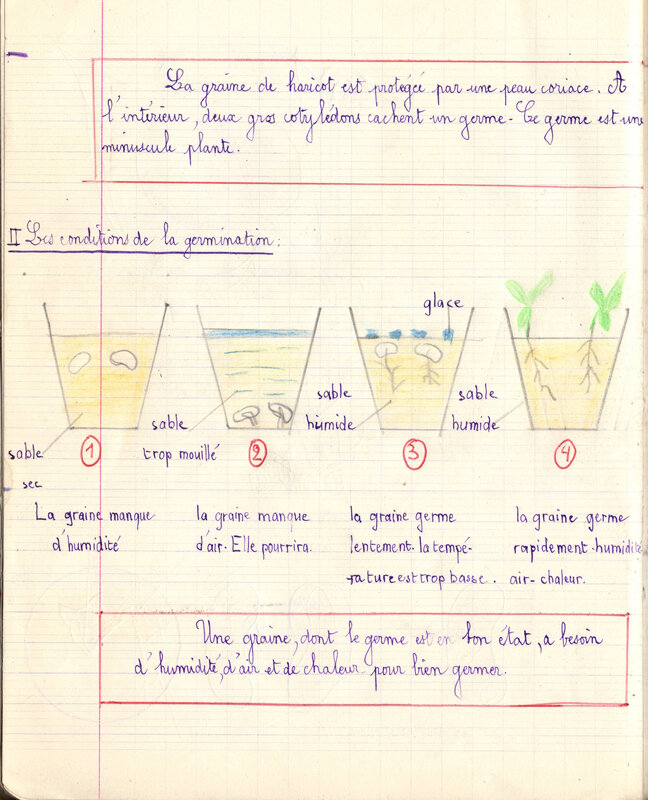 La graine de haricot est protégée par une peau coriace. A
l'intérieur, deux gros cotylédons cachent un germe. Ce germe est une
minuscule plante.
II Les conditions de la germination :
glace
sable
sec
sable
trop mouillé
sable
humide
sable
humide
1
2
3
4
La graine manque
d'humidité
la graine manque
d'air. Elle pourrira.
la graine germe
lentement. la tempé-
rature est trop basse.
la graine germe
rapidement. humidité
air - chaleur.
Une graine, dont le germe est en bon état, a besoin
d'humidité, d'air et de chaleur pour bien germer.